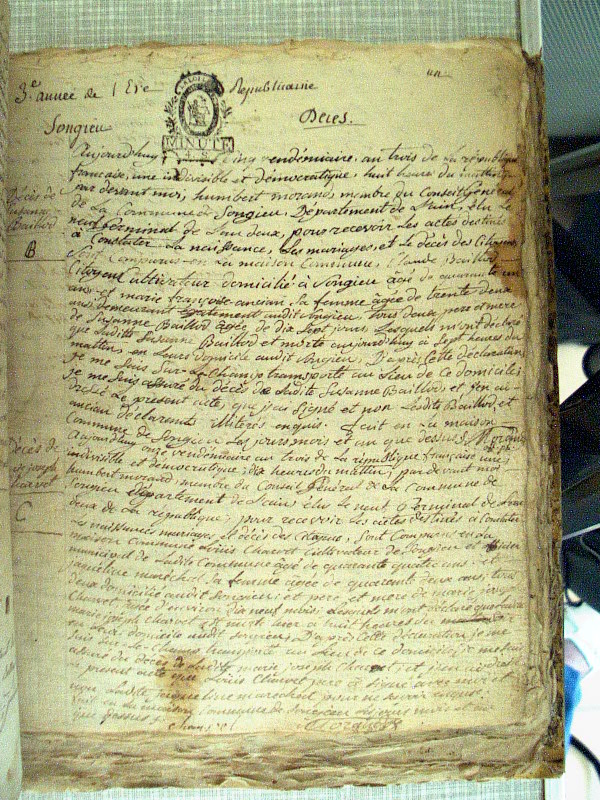 3e année de l'Ere Republicaine
Songieu
Deces.
MINUTE
Aujourdhuy cinq vendémiaire, an trois de la république
francaise, une indivisible et démocratique, huit heures du matin
par devant moi, humbert morand, membre du Conseil général
de La Commune de Songieu, Département de Lain, élu le
neuf Germinal de Lan deux, pour recevoir les actes destinés
à Constater La naissance, Les mariages, et le décès des Citoyens
Sont Comparus en La maison Commune, Claude Baillod
Citoyen Cultivateur domicilié à Songieu âgé de quarante un
ans et marie françoise ancian sa femme âgée de trente deux
ans demeurant également audit Songieu, tous deux père et mere
de Susanne Baillod âgée de dix Sept jours, Lesquels m'ont déclaré
que Ladite Susanne Baillod est morte aujourdhuy à Sept heures du
mattin, en Leurs domicile audit Songieu, D'après Cette déclaration
je me Suis Sur Le Champ transporté au Lieu de Ce domicile,
je me Suis assuré du décès de Ladite Susanne Baillod, et j'en ai
dressé Le présent acte, que j'ai Signé et non Lesdits Baillod, et
ancian déclarent illitérés enquis. fait en La maison
Commune de Songieu Les jours mois et an que dessus. Morand
Décès de
Susanne
Baillod
B
Aujourdhuy onze vendémiaire an trois de la république française une
indivisible et démocratique, dix heures du mattin, par devant moi
humbert morand, membre du Conseil Général de La Commune de
Songieu Département de Lain, élus le neuf Germinal de Lan
deux de La république, pour recevoir Les actes destinés à Constater
Les naissances mariages et décès des Citoyens, Sont Comparus en La
maison Commune Loüis Charvet Cultivateur de Songieu et officier
municipal de Ladite Commune âgé de quarante quatre ans, et
jaqueline maréchal sa femme âgée de quarante deux ans, tous
deux domiciliés audit Songieu, et père et mere de marie joseph
Charvet, âgée d'environ dix neuf mois, Lesquels m'ont déclaré que Ladite
marie joseph Charvet est morte hier à huit heures du
en Leur domicile audit Songieu, D'après Cette déclaration je me
Suis Sur-Le-Champ transporté au Lieu de Ce domicile, je me suis
assuré du décès de Ladite marie joseph Charvet, et j'en ai dressé
Le présent acte que Loüis Charvet père a Signé avec moi et
non Ladite jaqueline marechal pour ne savoir enquise.
fait en La maison Commune de Songieu Les jours mois et an
que dessus
Morand
Décès de
marie joseph
Charvet
C